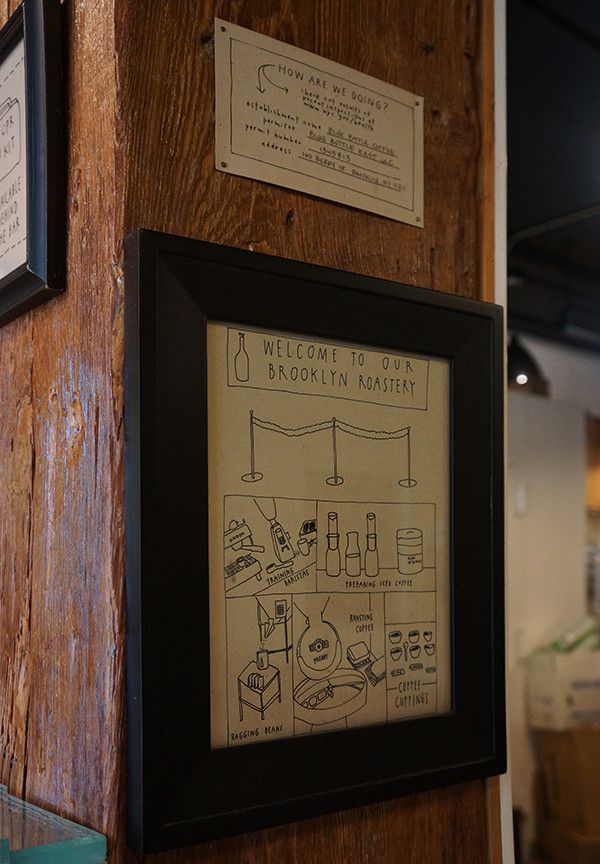 CPR
KIT
AVAILABLE
BEHIND
THE BAR
HOW ARE WE DOING?
check out results of
recent inspections at
www.nyc.gov/health
establishment name BLUE BOTTLE COFFEE
permitee BLUE BOTTLE EAST LLC
permit number 1345813
address 160 BERRY ST. BROOKLYN, NY 11211
WELCOME TO OUR
BROOKLYN ROASTERY
TRAINING
BARISTAS
PREPARING ICED COFFEE
ROASTING
COFFEE
PROBAT
BAGGING BEANS
COFFEE
CUPPINGS